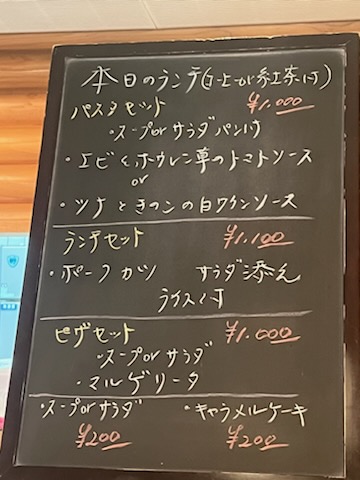 本日のランチ(コーヒーor紅茶付)
パスタセット ¥1.000
・スープorサラダパン付
・エビとホウレン草のトマトソース
or
・ツナときのこの白ワインソース
ランチセット ¥1.100
・ポークカツ サラダ添え
ライス付
ピザセット ¥1.000
・スープorサラダ
・マルゲリータ
・スープorサラダ ・キャラメルケーキ
¥200 ¥200